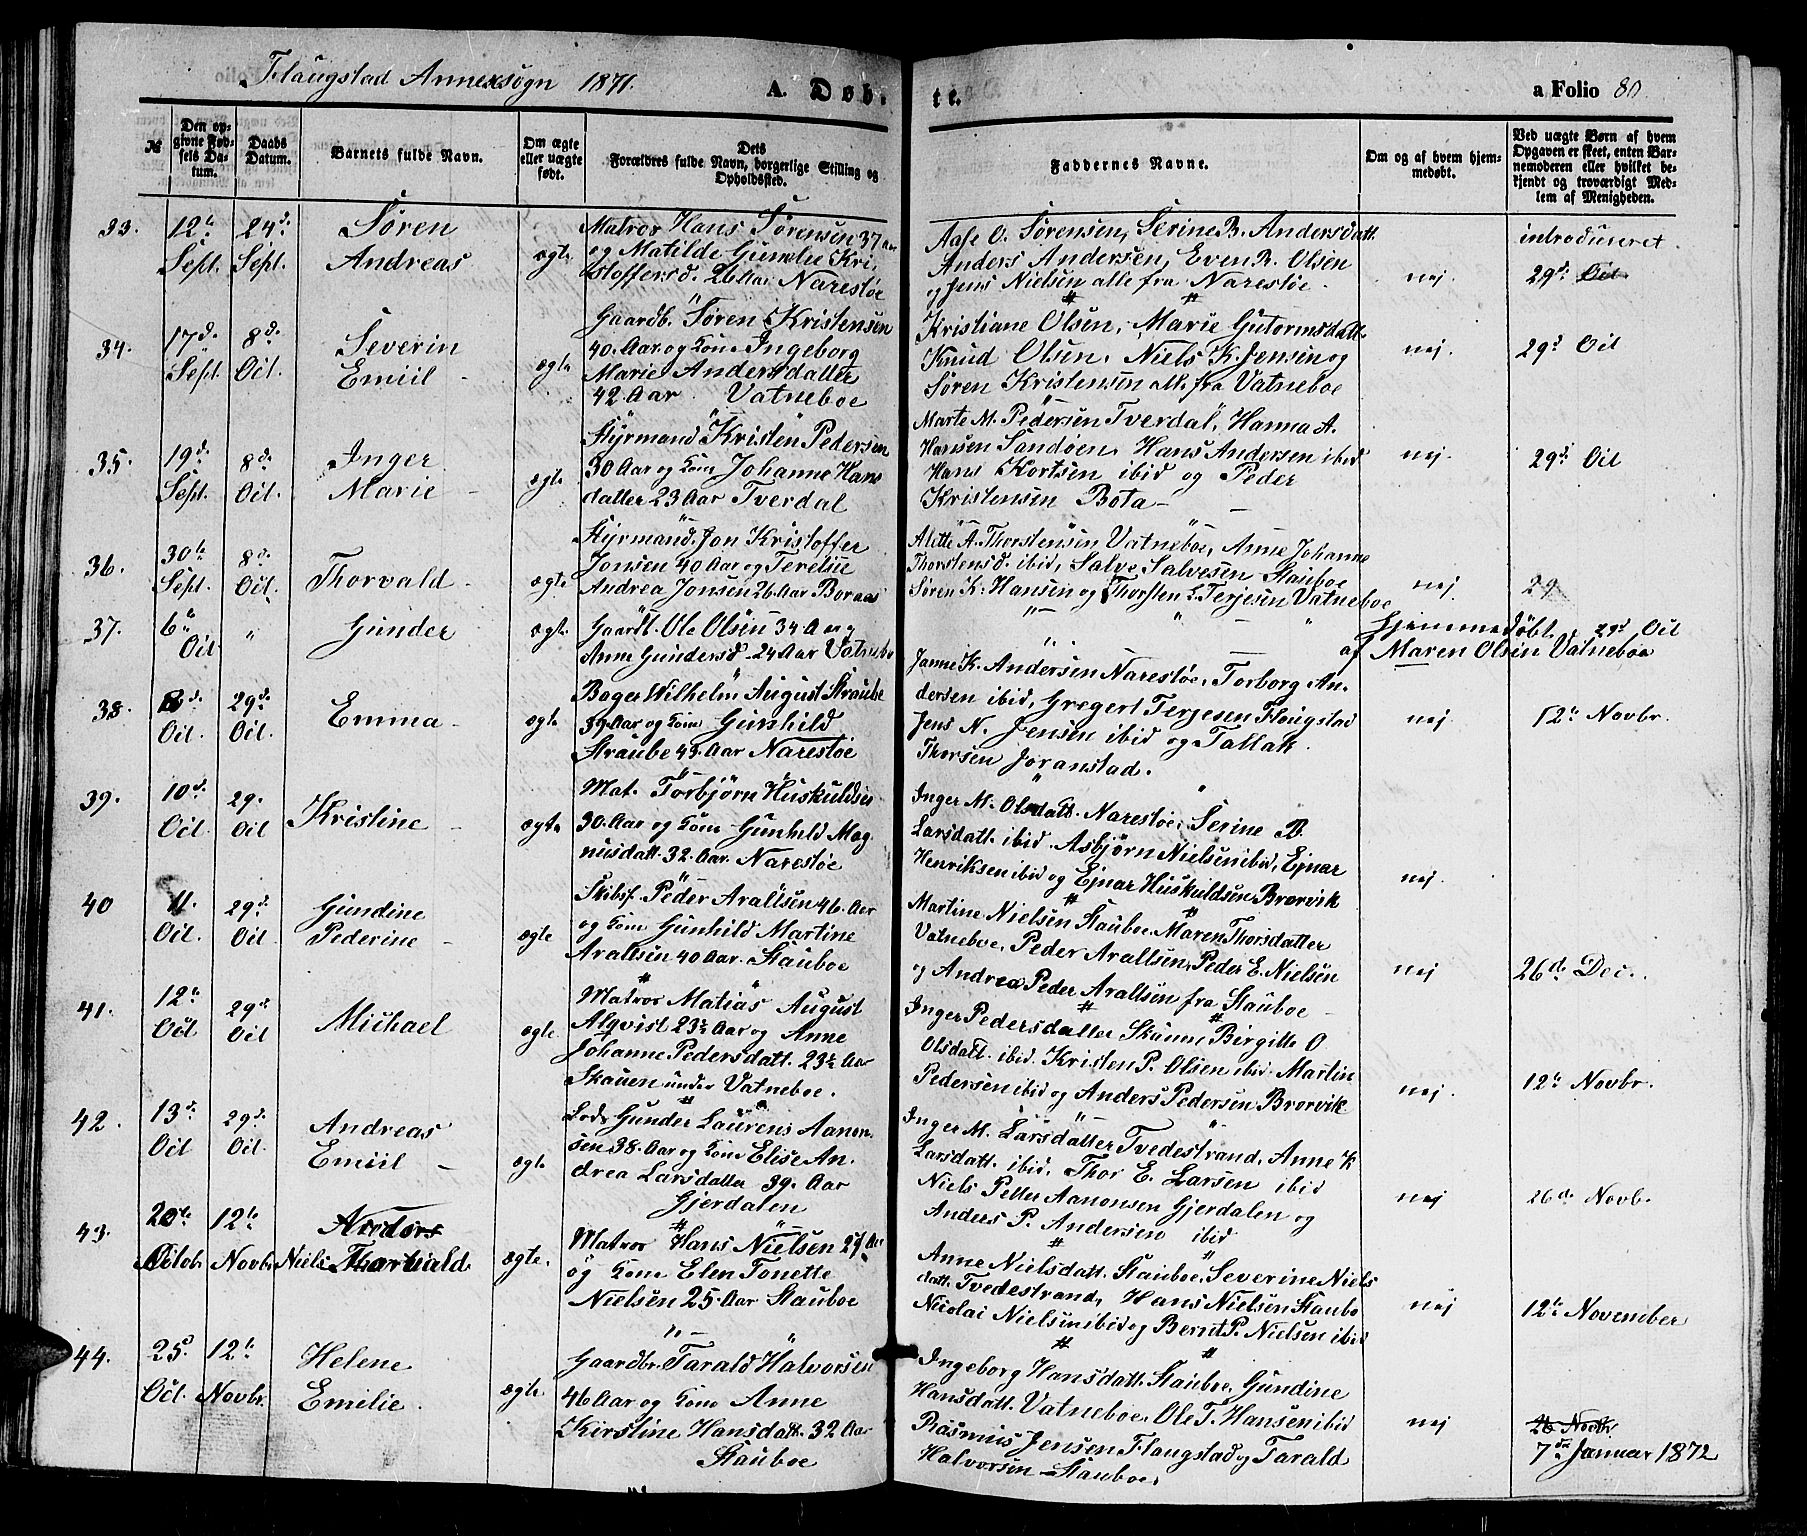 Flaugstad Annexsogn 1871.
A. Døb-
te.
a Folio 80
№
Den opgivne Fødsels Datum.
Daabs Datum.
Barnets fulde Navn.
Om ægte eller uægte født.
Dets Forældres fulde Navn, borgerlige Stilling og Opholdssted.
Faddernes Navne.
Om og af hvem hjemmedøbt.
Ved uægte Børn af hvem Opgaven er skeet, enten Barnemoderen eller hvilket bekjendt og troværdigt Medlem af Menigheden.
33. 12te Sept. 24d. Sept.
Søren
Andreas
ægte
Matros Hans Sørensen 37 Aar
og Matilde Gumelie Kri
stoffersd. 26 Aar Narestøe
Aase O. Sørensen, Serine B. Andersdatt.
Anders Andersen, Even R. Olsen
og Jens Nielsen alle fra Narestøe
nej.
introduseret
29d Oct.
34. 17d. Sept. 8d. Oct.
Severin
Emiil
ægte
Gaardb. Søren Kristensen
40. Aar og Kone Ingeborg
Marie Andersdatter
42. Aar. Vatneboe
Kristiane Olsen, Marie Gutormsdatt.
Knud Olsen, Niels K. Jensen og
Søren Kristensen all. fra Vatneboe
nej.
29d Oct
35. 19d. Sept. 8d. Oct.
Inger
Marie
ægte
Styrmand Kristen Pedersen
30 Aar og Kone Johanne Hans
datter 23 Aar Tverdal
Marte M. Pedersen Tverdal, Hanna A.
Hansen Sandøen, Hans Andersen ibid
Hans Kortsen ibid og Peder
Kristensen Bota
nej.
29d Oct
36. 30te Sept. 8d. Oct.
Thorvald
ægte
Styrmand. Jon Kristoffer
Jonsen 40 Aar og Terelie
Andrea Jonsen 26 Aar Boraas
Alette A. Thorstensen Vatneboe, Anne Johanne
Thorstensd. ibid, Salve Salvesen Stauboe
Søren K. Hansen og Thorsten L. Terjesen Vatneboe
nej.
29
37. 6te Oct "
Gunder
ægte
Gaardb. Ole Olsen 34 Aar og
Anne Gundersd. 24 Aar Vatneboe
Hjemmedøbt
af Maren Olsen Vatneboe
29d Oct
38. 8d. Oct. 29d. Oct.
Emma
ægte
Bager Wilhelm August Straube
39 Aar og Kone Gunhild
Straube 45. Aar Narestøe
Janne K. Andersen Narestøe, Torborg An.
dersen ibid, Gregert Terjesen Flougstad
Jens N. Jensen ibid og Tallak
Thorsen Joranstad.
nej
12te Novbr.
39. 10d. Oct. 29. Oct
Kristine
ægte
Mat. Torbjørn Huskuldsen
30. Aar og Kone Gunhild Mag
nusdatt. 32. Aar Narestøe
Inger M. Olsdatt. Narestøe, Serine B.
Larsdatt. ibid. Asbjørn Nielsen ibid, Ejnar
Henriksen ibid og Ejnar Huskuldsen Brorvik
nej.
40 11. Oct. 29d. Oct
Gundine
Pederine
ægte
Skibsf. Peder Arallsen 46. Aar
og Kone Gunhild Martine
Arallsen 40 Aar. Stauboe
Martine Nielsen Stauboe, Maren Thorsdatter
Vatneboe, Peder Arallsen, Peder E. Nielsen
og Andrea Peder Arallsen fra Stauboe
nej
26de Dec.
41. 12te Oct 29d Oct
Michael
ægte
Matros Matias August
Alqvist 23½ Aar og Anne
Johanne Pedersdatt. 23½ Aar
Skauen under Vatneboe.
Inger Pedersdatter Skauen Birgitte O
Olsdatt. ibid. Kristen P. Olsen ibid. Martin
Pedersen ibid og Anders Pedersen Brorvik
nej.
12te Novbr.
42. 13d. Oct 29d. Oct.
Andreas
Emiil
ægte
Lods Gunder Laurens Aanon
sen 38. Aar og Kone Elise An.
drea Larsdatter 39. Aar
Gjerdalen
Inger M. Larsdatter Tvedestrand, Anne K
Larsdatt. ibid, Thor E. Larsen ibid
Niels Petter Aanonsen Gjerdalen og
Anders P. Andersen ibid
nej
26de Novb.
43. 20te Octob. 12te Novbr
Niels Thorvald
ægte.
Matros Hans Nielsen 27 Aar
og Kone Elen Tonette
Nielsen 25. Aar Stauboe
Anne Nielsdatt. Stauboe, Severine Niels
datt. Tvedestrand, Hans Nielsen Staubo
Nicolai Nielsen ibid og Bernt P. Nielsen ibid
nej
12te November
44. 25d. Oct. 12te Novbr.
Helene
Emilie.
ægte
Gaardbr. Tarald Halvorsen
46 Aar og Kone Anne
Kirstine Hansdatt. 32 Aar
Stauboe
Ingeborg Hansdatt. Stauboe, Gundine
Hansdatt. Vatneboe, Ole T. Hansen ibid
Rasmus Jensen Flaugstad og Tarald
Halvorsen Stauboe.
nej
26 Novbr.
7de Januar 1872